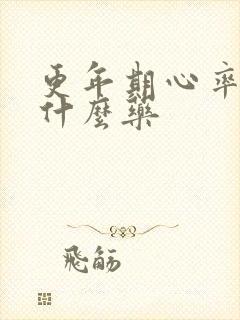 更年期心率
什麼藥
飛觞